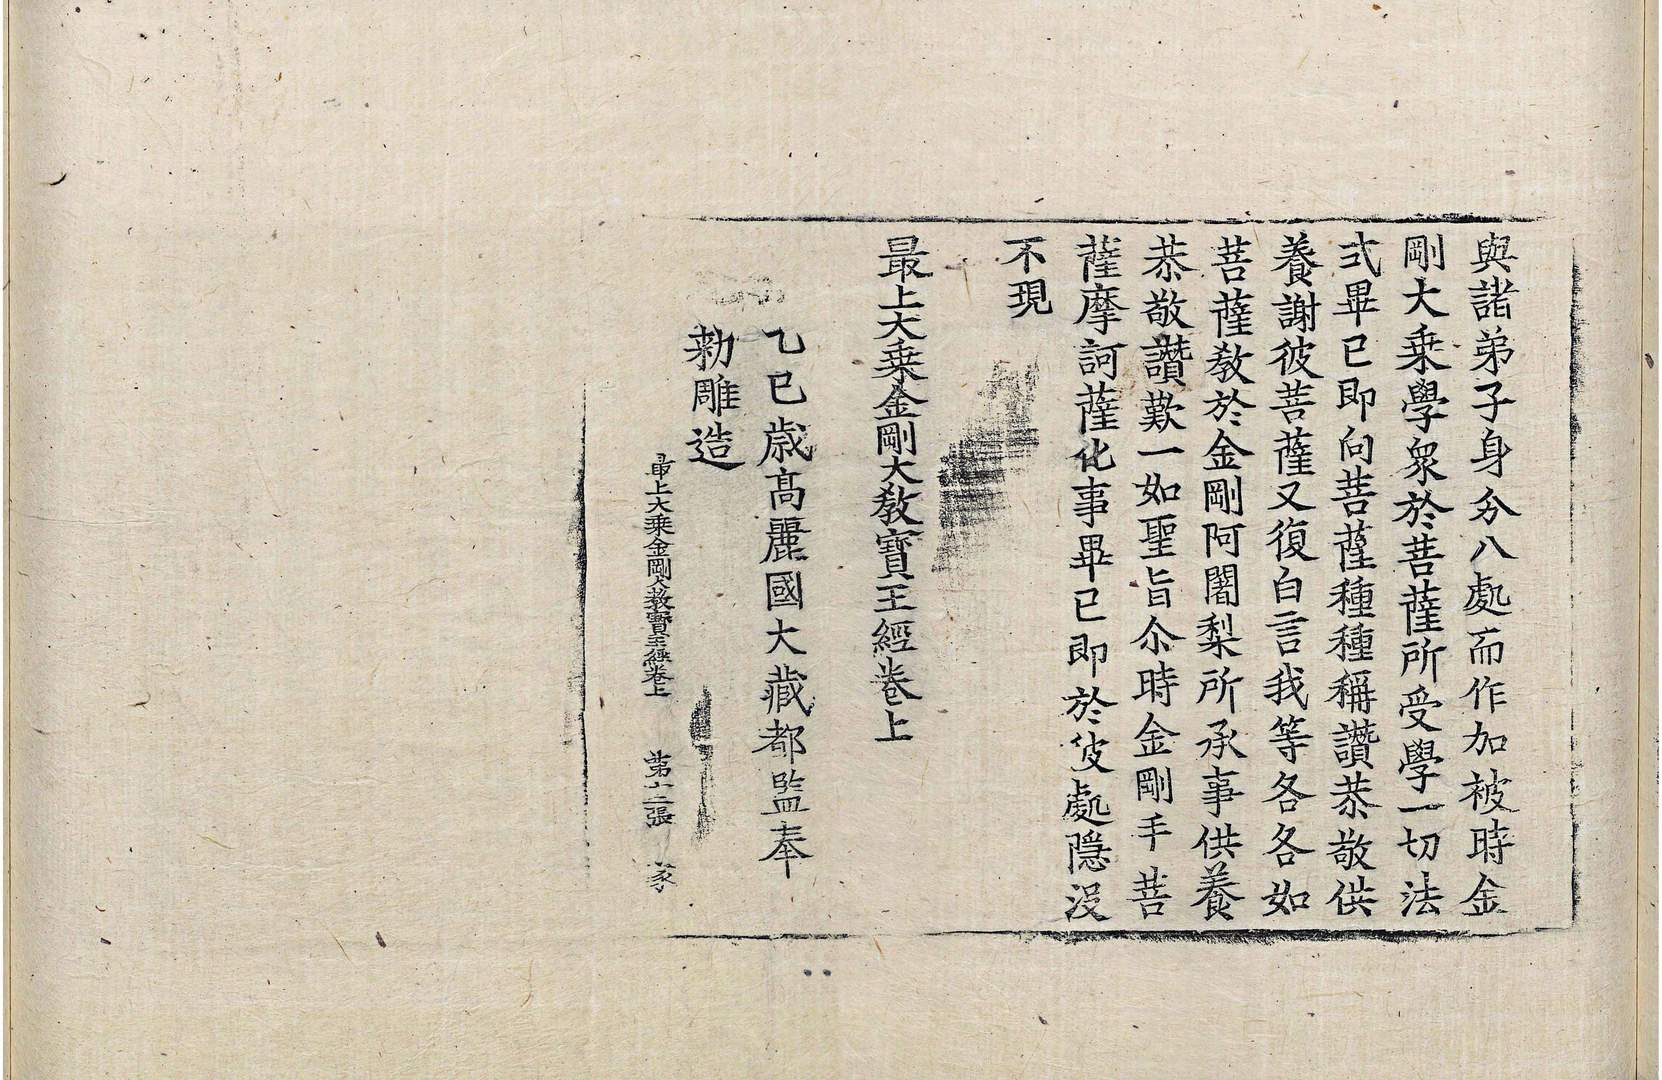 與諸弟子身分八處而作加被時金
剛大乗學衆於菩薩所受學一切法
式畢已即向菩薩種種稱讚恭敬供
養謝彼菩薩又復白言我等各各如
菩薩敎於金剛阿闍梨所承事供養
恭敬讚歎一如聖旨尒時金剛手菩
薩摩訶薩化事畢已即於彼處隱沒
不現
最上大乗金剛大敎寶王經卷上
乙巳歲高麗國大藏都監奉
勑雕造
最上大乗金剛大敎寶王經卷上 第十二張